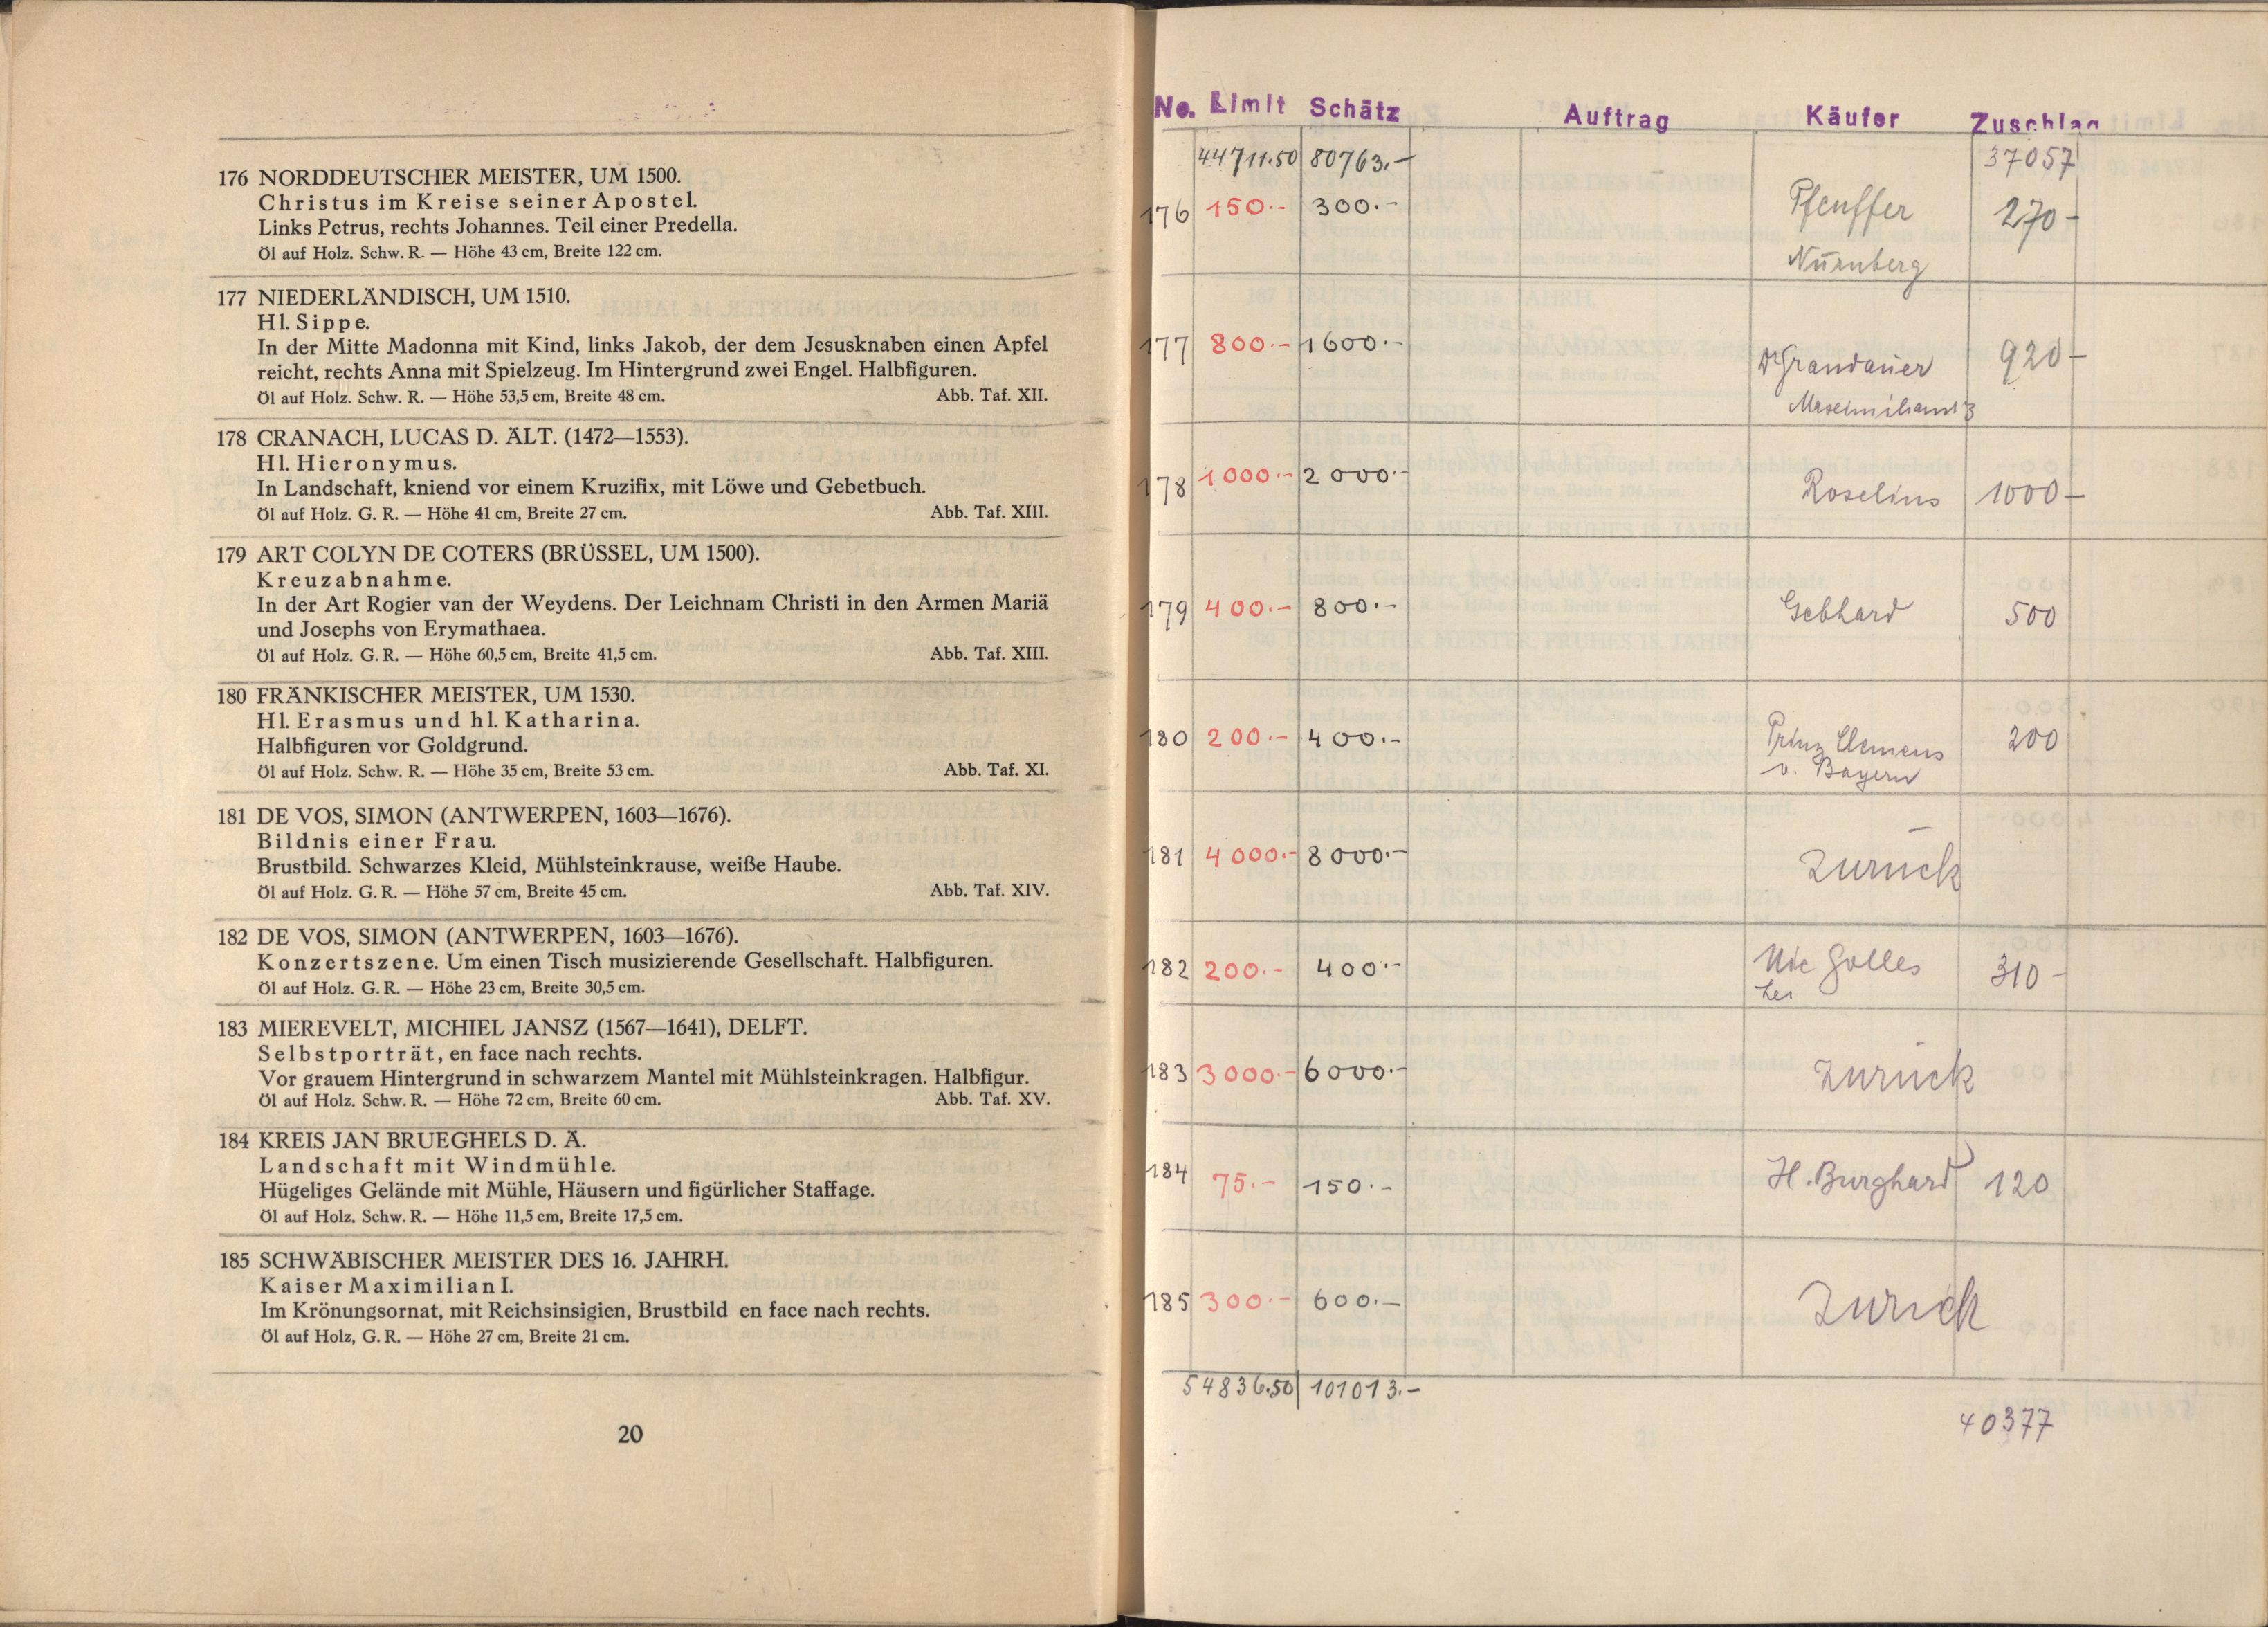 176 NORDDEUTSCHER MEISTER, UM 1500.
Christus im Kreise seiner Apostel.
Links Petrus, rechts Johannes. Teil einer Predella.
Öl auf Holz. Schw. R. — Höhe 43 cm, Breite 122 cm.
177 NIEDERLÄNDISCH, UM 1510.
Hl. Sippe.
In der Mitte Madonna mit Kind, links Jakob, der dem Jesusknaben einen Apfel
reicht, rechts Anna mit Spielzeug. Im Hintergrund zwei Engel. Halbfiguren.
Öl auf Holz. Schw. R. — Höhe 53,5 cm, Breite 48 cm. Abb. Taf. XII.
178 CRANACH, LUCAS D. ÄLT. (1472—1553).
Hl. Hieronymus.
In Landschaft, kniend vor einem Kruzifix, mit Löwe und Gebetbuch.
Öl auf Holz. G. R. — Höhe 41 cm, Breite 27 cm. Abb. Taf. XIII.
179 ART COLYN DE COTERS (BRÜSSEL, UM 1500).
Kreuzabnahme.
In der Art Rogier van der Weydens. Der Leichnam Christi in den Armen Mariä
und Josephs von Erymathaea.
Öl auf Holz. G. R. — Höhe 60,5 cm, Breite 41,5 cm. Abb. Taf. XIII.
180 FRÄNKISCHER MEISTER, UM 1530.
Hl. Erasmus und hl. Katharina.
Halbfiguren vor Goldgrund.
Öl auf Holz. Schw. R. — Höhe 35 cm, Breite 53 cm. Abb. Taf. XI.
181 DE VOS, SIMON (ANTWERPEN, 1603—1676).
Bildnis einer Frau.
Brustbild. Schwarzes Kleid, Mühlsteinkrause, weiße Haube.
Öl auf Holz. G. R. — Höhe 57 cm, Breite 45 cm. Abb. Taf. XIV.
182 DE VOS, SIMON (ANTWERPEN, 1603—1676).
Konzertszene. Um einen Tisch musizierende Gesellschaft. Halbfiguren.
Öl auf Holz. G. R. — Höhe 23 cm, Breite 30,5 cm.
183 MIEREVELT, MICHIEL JANSZ (1567—1641), DELFT.
Selbstporträt, en face nach rechts.
Vor grauem Hintergrund in schwarzem Mantel mit Mühlsteinkragen. Halbfigur.
Öl auf Holz. Schw. R. — Höhe 72 cm, Breite 60 cm. Abb. Taf. XV.
184 KREIS JAN BRUEGHELS D. Ä.
Landschaft mit Windmühle.
Hügeliges Gelände mit Mühle, Häusern und figürlicher Staffage.
Öl auf Holz. Schw. R. — Höhe 11,5 cm, Breite 17,5 cm.
185 SCHWÄBISCHER MEISTER DES 16. JAHRH.
Kaiser Maximilian I.
Im Krönungsornat, mit Reichsinsigien, Brustbild en face nach rechts.
Öl auf Holz, G. R. — Höhe 27 cm, Breite 21 cm.
20
No. Limit Schätz Auftrag Käufer Zuschlag
44711.50 80763.- 37057
176 150.- 300.- Pfeuffer 270-
Nürnberg
177 800.- 1600.- Dr Grandauer 920-
178 1000.- 2000.- Roselius 1000-
179 400.- 800.- Gebhard 500
180 200.- 400.- Prinz Clemens 200
v. Bayern
181 4000.- 8000.- Zurück
182 200.- 400.- 310-
183 3000.- 6000.- Zurück
184 75.- 150.- H. Burghard 120
185 300.- 600.- Zurück
54836.50 101013.-
40377